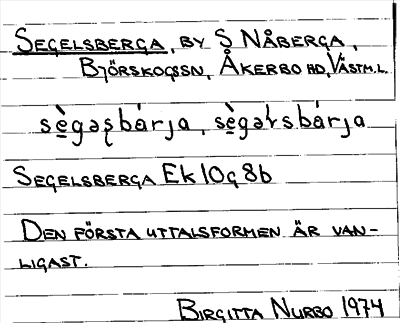 SEGELSBERGA, BY S NÅBERGA,
BJÖRSKOGSSN, ÅKERBO HD, VÄSTM.L.
sè̱gəʂbárja, sè̱gəɫsbárja
SEGELSBERGA Ek 10g 8b
DEN FÖRSTA UTTALSFORMEN ÄR VAN-
LIGAST.
BIRGITTA NURBO 1974